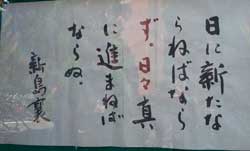 日に新たな
らねばなら
ず。日々真
に進まねば
ならぬ。
新島襄